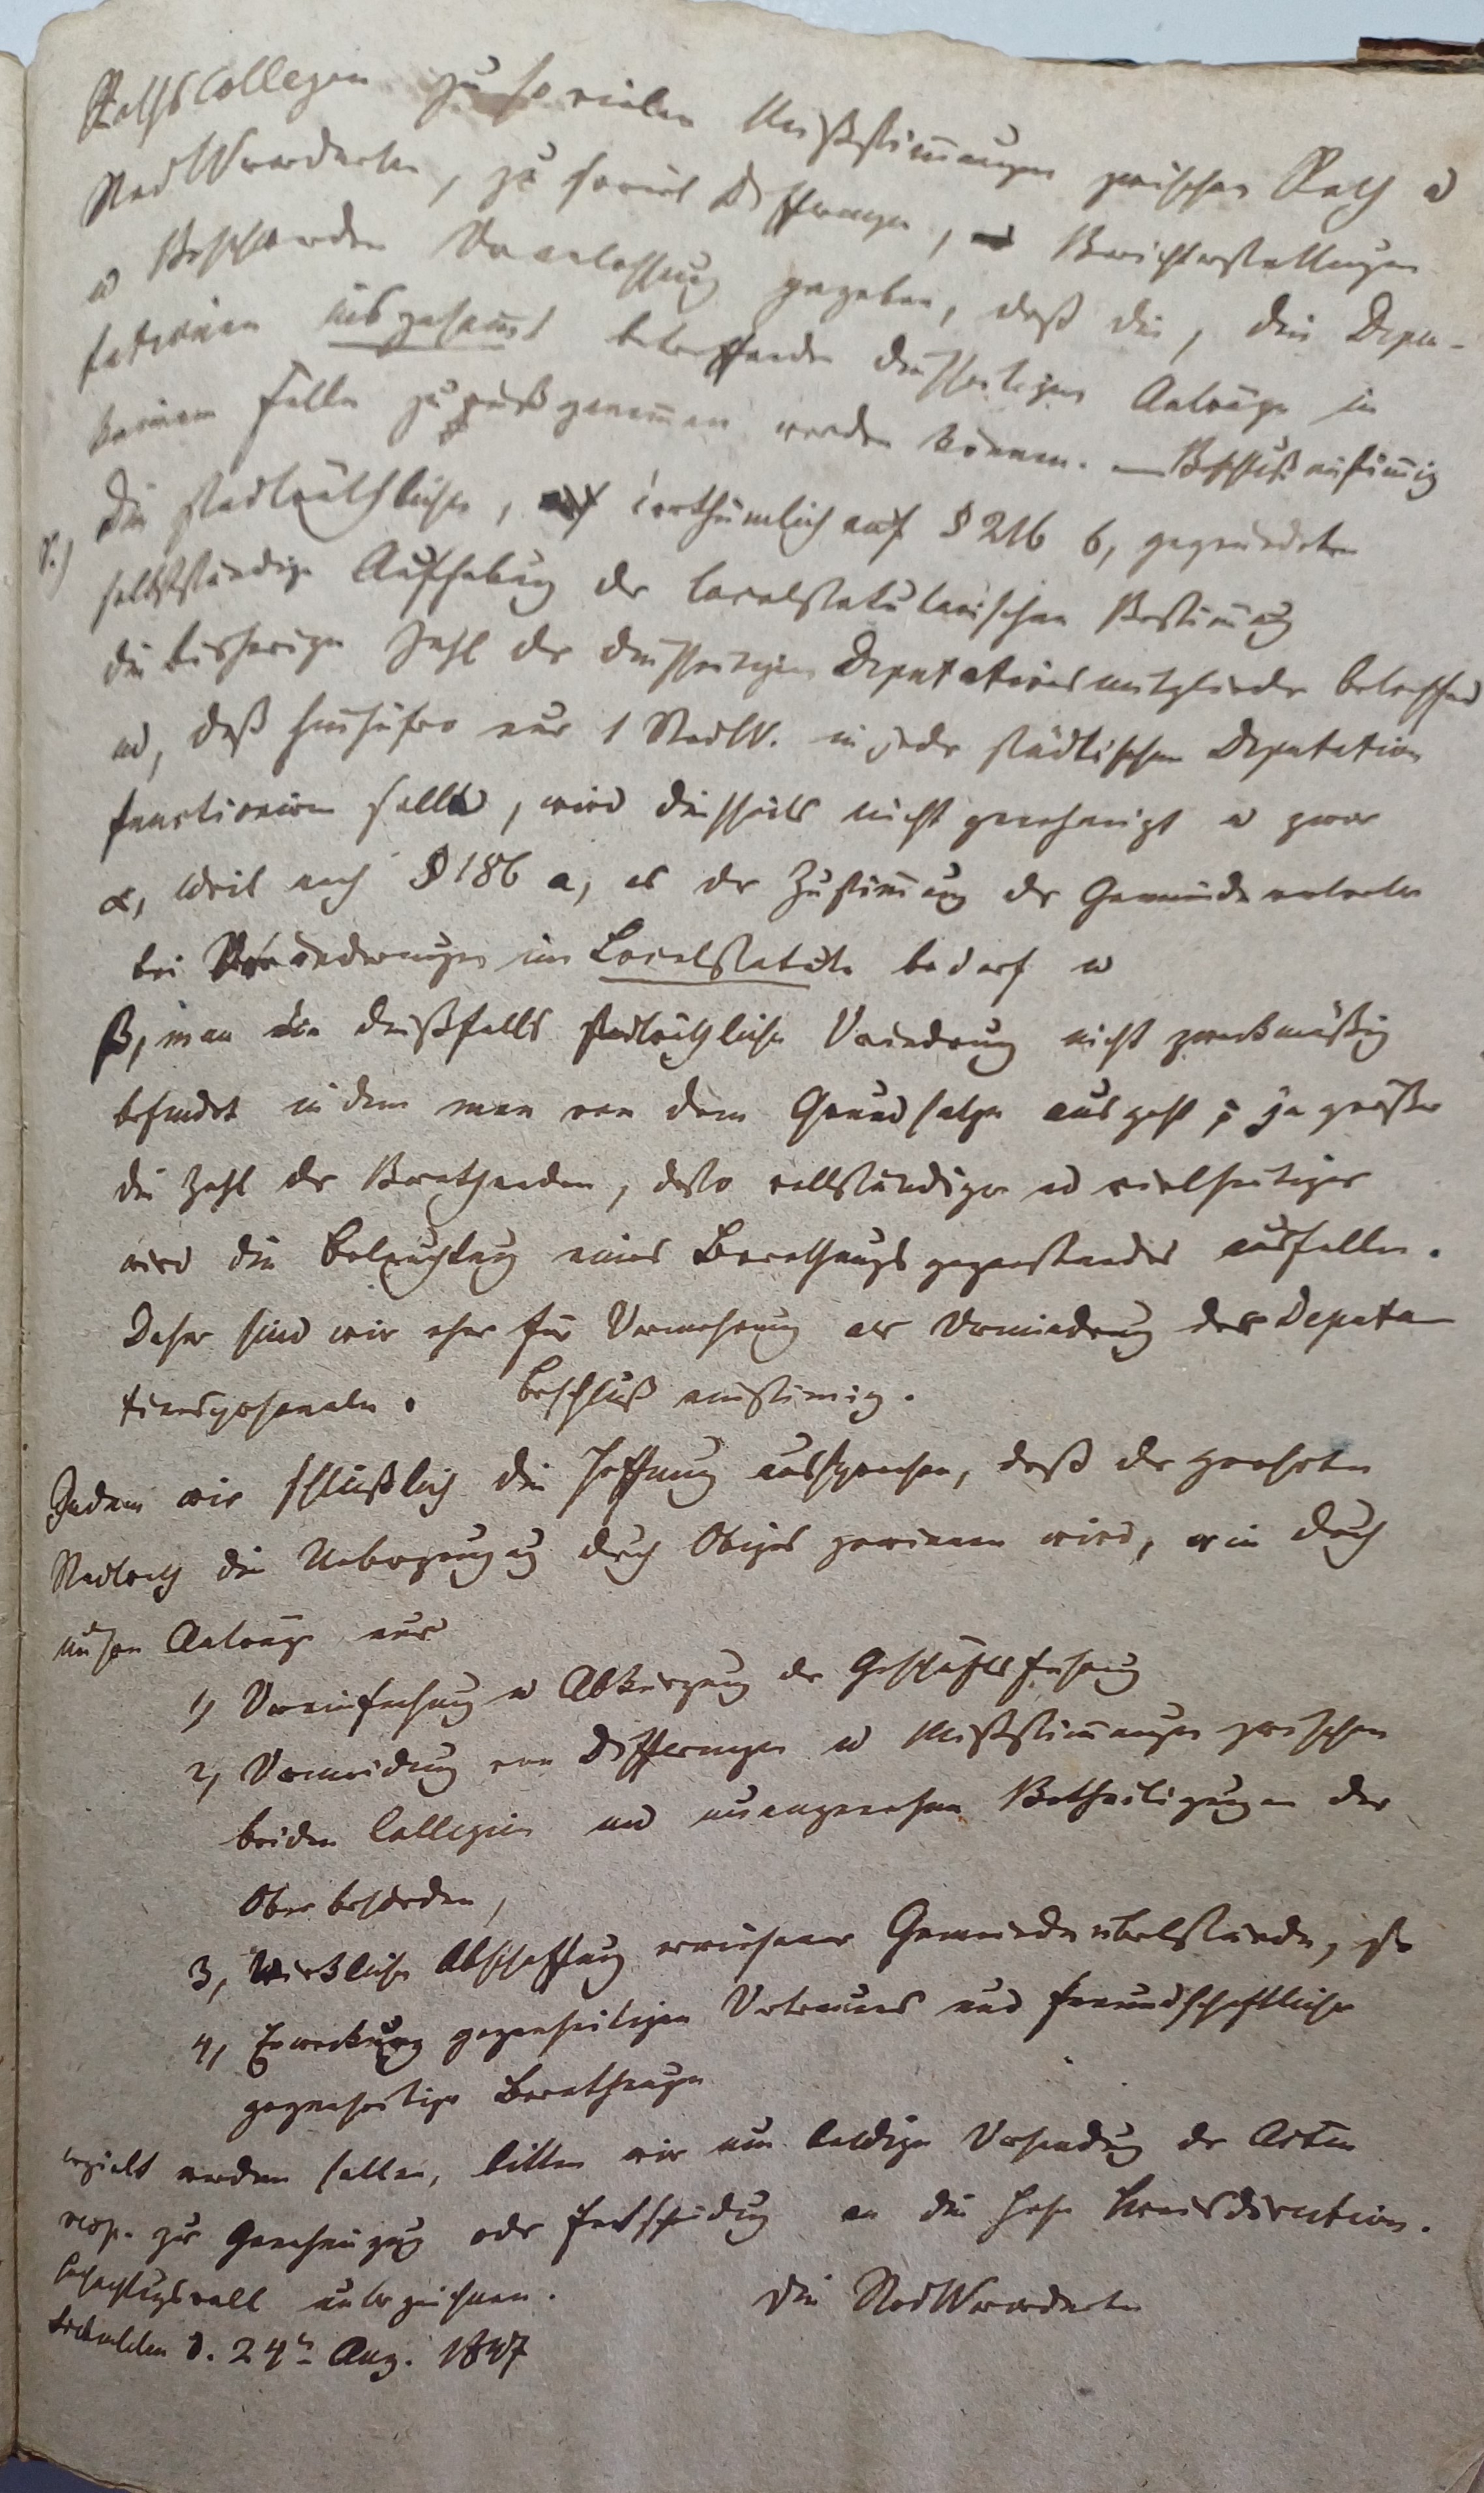 RathsCollegen zu so vielen Mißstim̅ungen zwischen Rath u
StadtVerordneten, zu soviel Differenzen, Berichterstattungen
u Beschwerden Veranlassung gegeben, daß die, die Depu-
tationen insgesam̅t betreffenden dießseitigen Anträge in
keinem Falle genom̅en werden können. — Beschluß einstim̅ig
Die stadträthliche, irrthümlich auf § 216 b, gegründete
selbstständige Aufhebung der localstatutarischen Bestim̅ung
die bisherige Zahl der dießseitigen Deputationsmitglieder betreffend
und, daß hinführo nur 1 StadtV. in jeder städtischen Deputation
functioniren solle, wird dießseits nicht genehmigt u zwar
α, weil nach § 186 a, es der Zustim̅ung der Gemeindevertreter
bei Veränderungen im Localstatute bedarf u
β, man die dießfalls stadträthliche Veränderung nicht zweckmäßig
befindet indem man von dem Grundsatze ausgeht; je größer
die Zahl der Berathenden, desto vollständiger und vielseitiger
wird die Beleuchtung eines Berathungsgegenstandes ausfallen.
Daher sind wir eher für Vermehrung als Verminderung des Deputa-
tionspersonals. Beschluß einstimig.
Indem wir schlüßlich die Hoffnung aussprechen, daß der geehrte
Stadtrath die Ueberzeugung durch Obiges gewinnen wird, wie durch
unsere Anträge nur
1) Vereinfachung u Abkürzung der Geschäftsführung
2, Vermeidung von Differenzen u Mißstim̅ungen zwischen
beiden Collegien und unangenehme Betheiligungen der
Oberbehörden,
3, Wirkliche Abschaffung erwiesener Gemeindeübelstände,
4, Erweckung gegenseitigen Vertrauens und freundschaftliche
gegenseitige Berathungen
erzielt werden sollen, bitten wir um baldige Versendung der Acten
resp. zur Genehmigung oder Entscheidung an die Hohe Kreisdirection.
Hochachtungsvoll unterzeichnen. Die StadtVerordneten
d. 24ten Aug. 1847